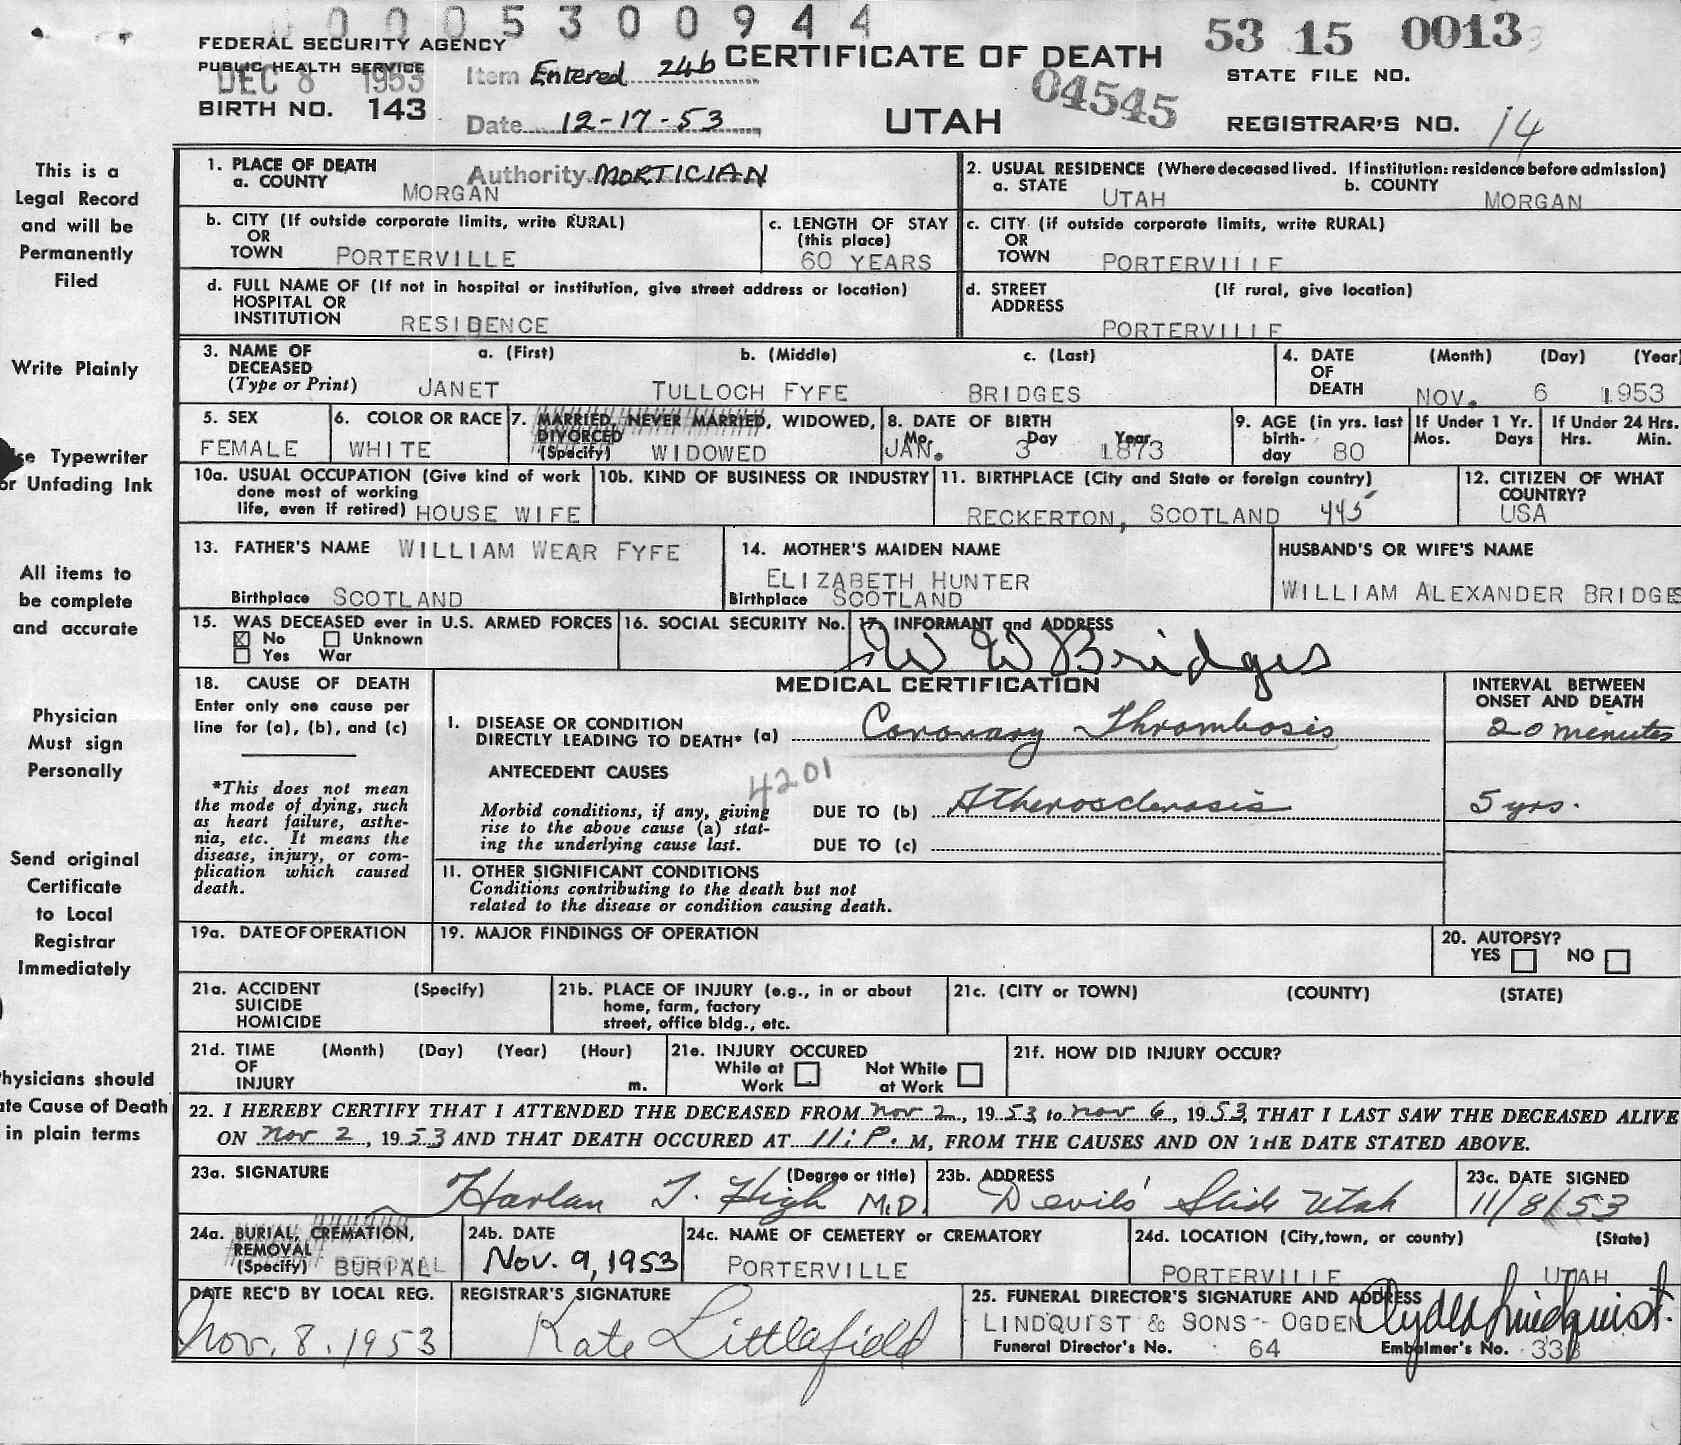 0005300944
53 15 0013
FEDERAL SECURITY AGENCY
PUBLIC HEALTH SERVICE
DEC 8 1953
Item Entered 24b
CERTIFICATE OF DEATH
STATE FILE NO.
04545
BIRTH NO. 143
Date 12-17-53
UTAH
REGISTRAR'S NO. 14
This is a
Legal Record
and will be
Permanently
Filed
Write Plainly
se Typewriter
or Unfading Ink
All items to
be complete
and accurate
Physician
Must sign
Personally
Send original
Certificate
to Local
Registrar
Immediately
hysicians should
ate Cause of Death
in plain terms
1. PLACE OF DEATH
a. COUNTY MORGAN
Authority MORTICIAN
2. USUAL RESIDENCE (Where deceased lived. If institution: residence before admission)
a. STATE UTAH b. COUNTY MORGAN
b. CITY (If outside corporate limits, write RURAL)
OR
TOWN PORTERVILLE
c. LENGTH OF STAY
(this place)
60 YEARS
c. CITY (if outside corporate limits, write RURAL)
OR
TOWN PORTERVILLE
d. FULL NAME OF (If not in hospital or institution, give street address or location)
HOSPITAL OR
INSTITUTION RESIDENCE
d. STREET (If rural, give location)
ADDRESS
PORTERVILLE
3. NAME OF a. (First) b. (Middle) c. (Last)
DECEASED
(Type or Print) JANET TULLOCH FYFE BRIDGES
4. DATE (Month) (Day) (Year)
OF
DEATH NOV. 6 1953
5. SEX
FEMALE
6. COLOR OR RACE
WHITE
7. MARRIED, NEVER MARRIED, WIDOWED,
DIVORCED
(Specify) WIDOWED
8. DATE OF BIRTH
Mo. Day Year
JAN. 3 1873
9. AGE (in yrs. last
birth-
day 80
If Under 1 Yr.
Mos. Days
If Under 24 Hrs.
Hrs. Min.
10a. USUAL OCCUPATION (Give kind of work
done most of working
life, even if retired) HOUSE WIFE
10b. KIND OF BUSINESS OR INDUSTRY
11. BIRTHPLACE (City and State or foreign country)
RECKERTON, SCOTLAND 445
12. CITIZEN OF WHAT
COUNTRY?
USA
13. FATHER'S NAME WILLIAM WEAR FYFE
Birthplace SCOTLAND
14. MOTHER'S MAIDEN NAME
ELIZABETH HUNTER
Birthplace SCOTLAND
HUSBAND'S OR WIFE'S NAME
WILLIAM ALEXANDER BRIDGE
15. WAS DECEASED ever in U.S. ARMED FORCES
No Unknown
Yes War
16. SOCIAL SECURITY No.
17. INFORMANT and ADDRESS
W W Bridges
18. CAUSE OF DEATH
Enter only one cause per
line for (a), (b), and (c)
*This does not mean
the mode of dying, such
as heart failure, asthe-
nia, etc. It means the
disease, injury, or com-
plication which caused
death.
MEDICAL CERTIFICATION
INTERVAL BETWEEN
ONSET AND DEATH
I. DISEASE OR CONDITION
DIRECTLY LEADING TO DEATH* (a) Coronary Thrombosis 20 minutes
ANTECEDENT CAUSES
4201
Morbid conditions, if any, giving
rise to the above cause (a) stat-
ing the underlying cause last.
DUE TO (b) Atherosclerosis 5 yrs.
DUE TO (c)
II. OTHER SIGNIFICANT CONDITIONS
Conditions contributing to the death but not
related to the disease or condition causing death.
19a. DATE OF OPERATION
19. MAJOR FINDINGS OF OPERATION
20. AUTOPSY?
YES NO
21a. ACCIDENT (Specify)
SUICIDE
HOMICIDE
21b. PLACE OF INJURY (e.g., in or about
home, farm, factory
street, office bldg., etc.
21c. (CITY or TOWN) (COUNTY) (STATE)
21d. TIME (Month) (Day) (Year) (Hour)
OF
INJURY m.
21e. INJURY OCCURED
While at Work Not While at Work
21f. HOW DID INJURY OCCUR?
22. I HEREBY CERTIFY THAT I ATTENDED THE DECEASED FROM Nov 2, 1953 to Nov 6, 1953, THAT I LAST SAW THE DECEASED ALIVE
ON Nov 2, 1953 AND THAT DEATH OCCURED AT 11: P. M, FROM THE CAUSES AND ON THE DATE STATED ABOVE.
23a. SIGNATURE (Degree or title)
Harlan T. High M.D.
23b. ADDRESS
Devils' Slide Utah
23c. DATE SIGNED
11/8/53
24a. BURIAL, CREMATION,
REMOVAL
(Specify) BURIAL
24b. DATE
Nov. 9, 1953
24c. NAME OF CEMETERY or CREMATORY
PORTERVILLE
24d. LOCATION (City, town, or county) (State)
PORTERVILLE UTAH
DATE REC'D BY LOCAL REG.
Nov. 8. 1953
REGISTRAR'S SIGNATURE
Kate Littlefield
25. FUNERAL DIRECTOR'S SIGNATURE AND ADDRESS
LINDQUIST & SONS - OGDEN Clyde Lindquist.
Funeral Director's No. 64 Embalmer's No.